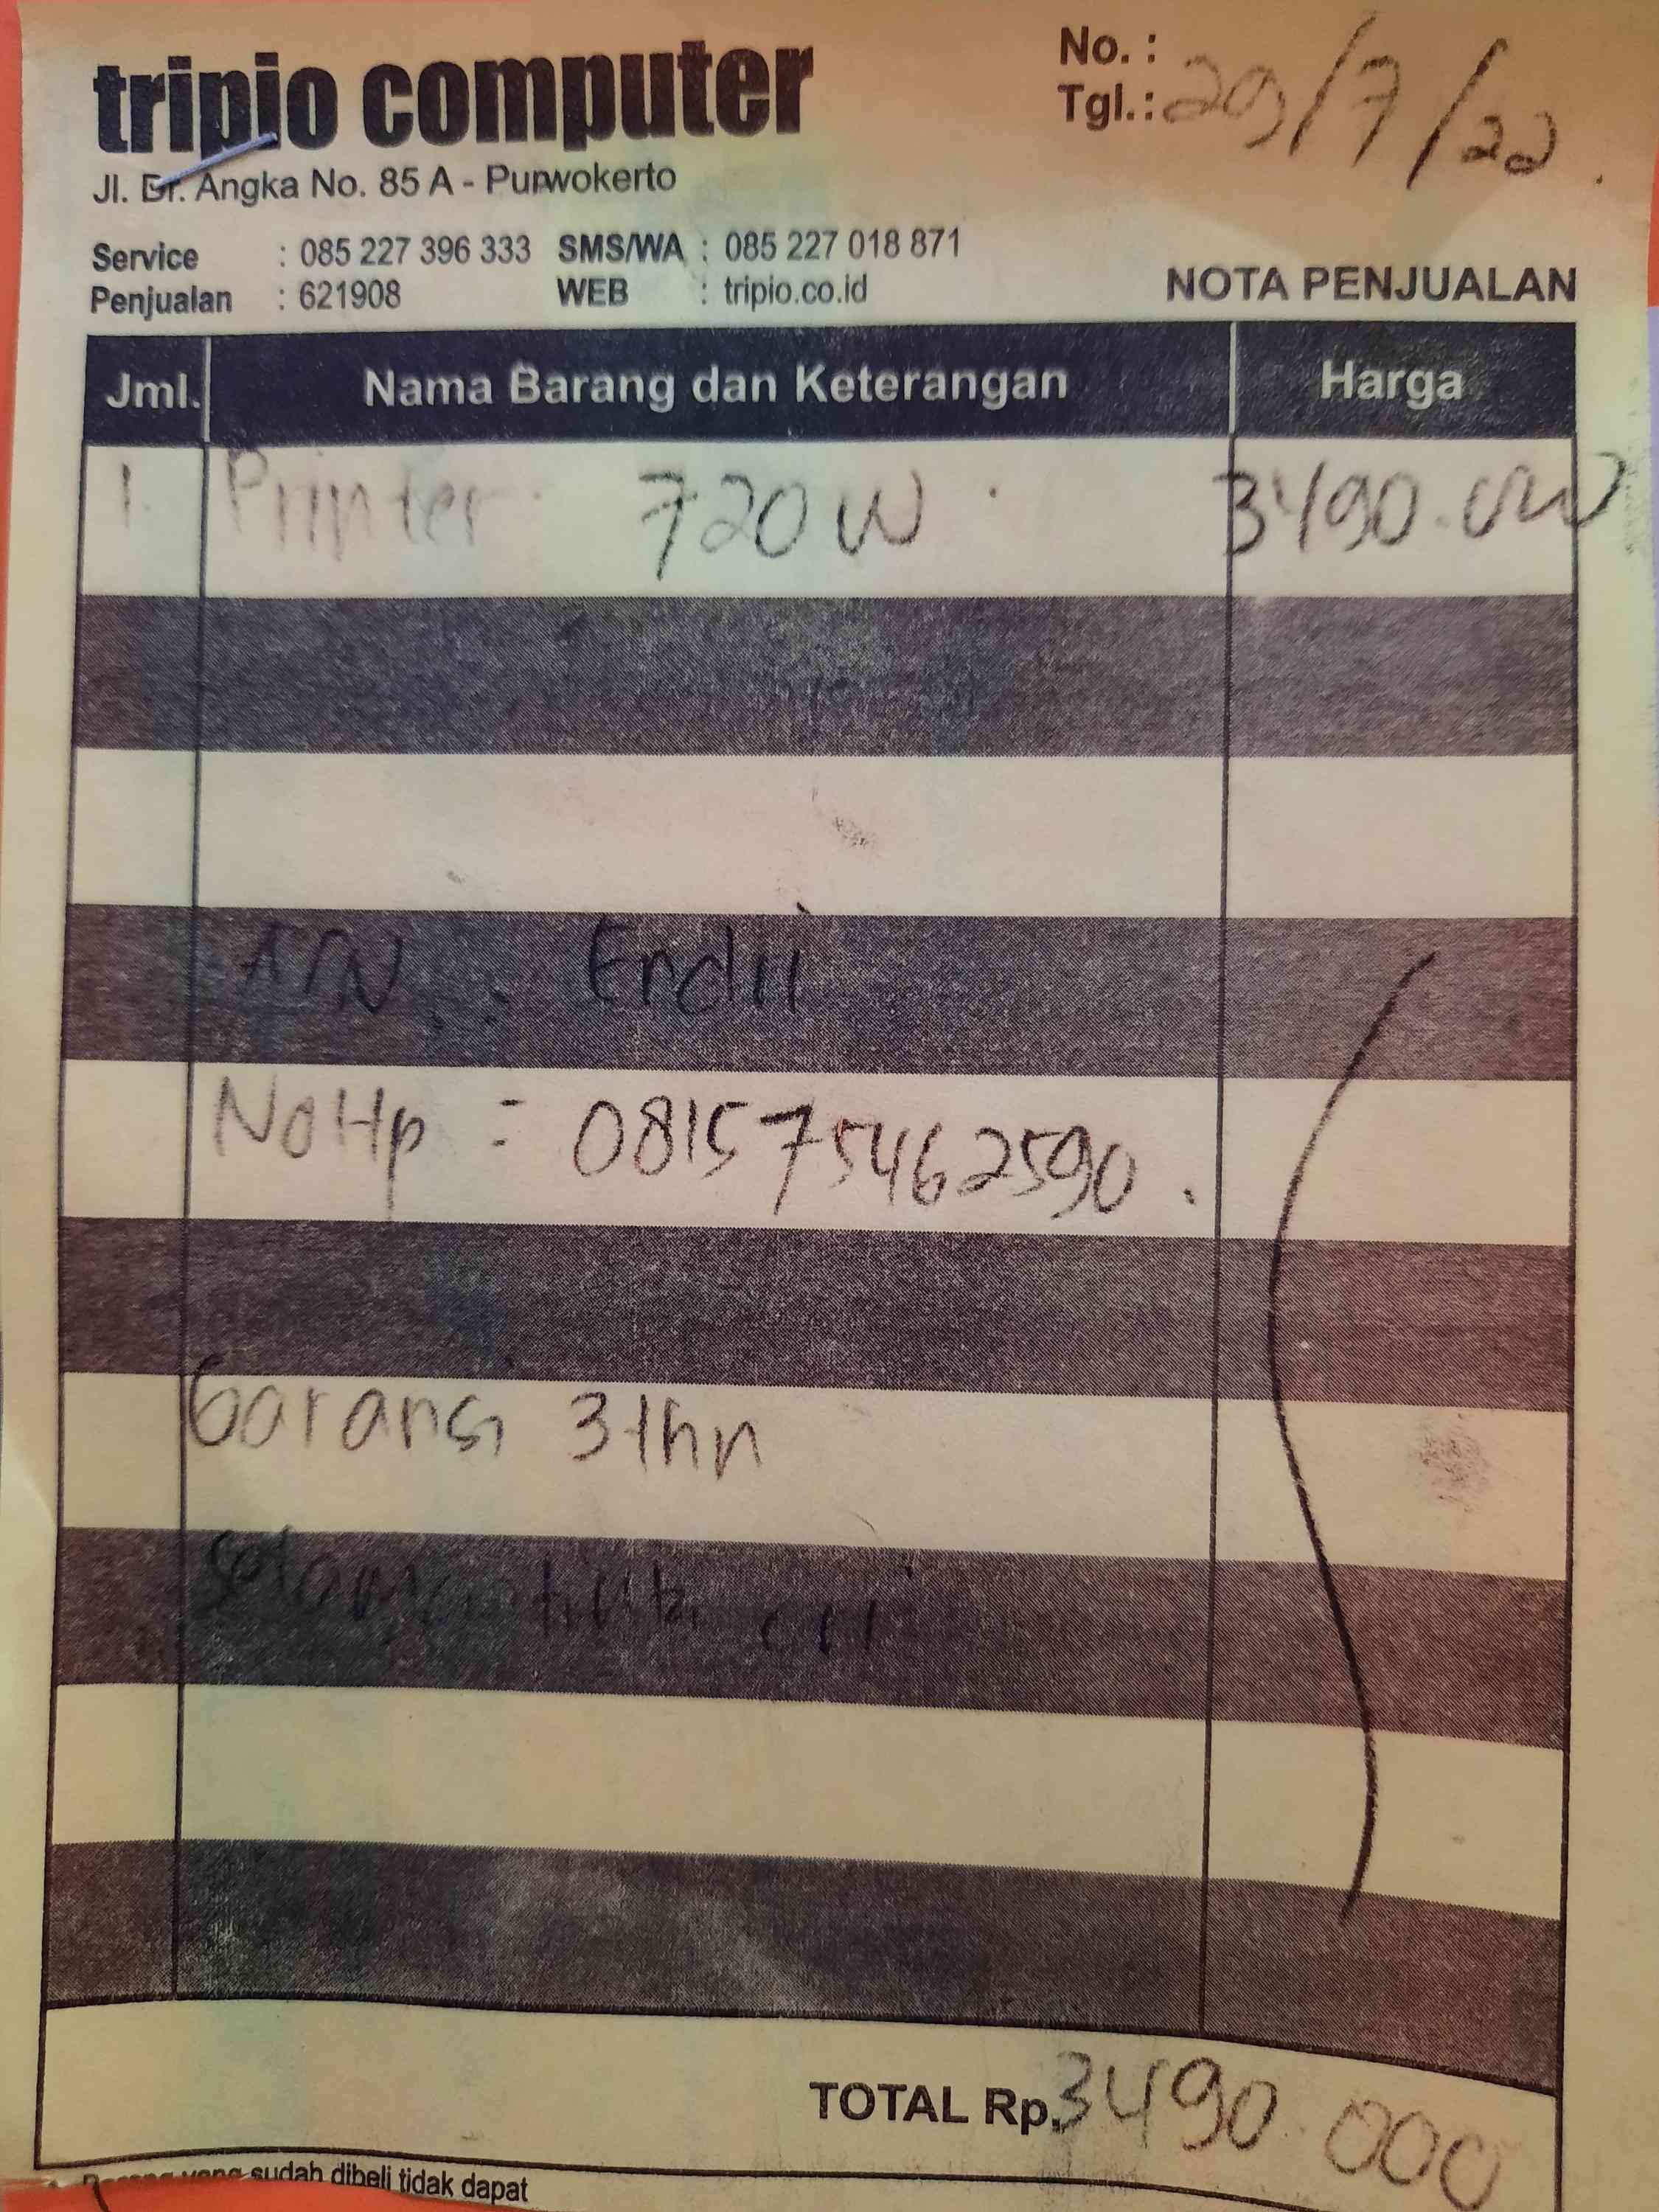 tripio computer
Jl. Dr. Angka No. 85 A - Purwokerto
No. :
Tgl. : 29/7/22.
Service : 085 227 396 333 SMS/WA : 085 227 018 871
Penjualan : 621908 WEB : tripio.co.id
NOTA PENJUALAN
Jml. Nama Barang dan Keterangan Harga
1. Printer 720 W 3490.000
A/N : Endri
NoHp = 081575462590.
Garansi 3 thn
TOTAL Rp. 3490.000
yang sudah dibeli tidak dapat